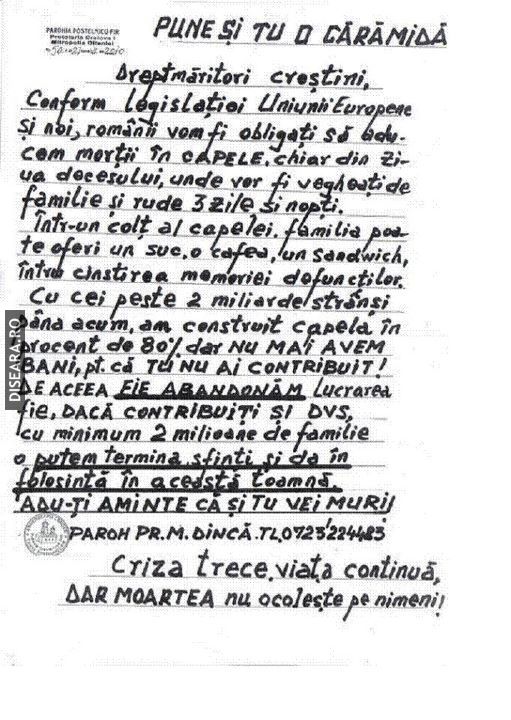 PAROHIA POSTELNICU FIR
Protoieria Craiova I
Mitropolia Olteniei
PUNE ȘI TU O CĂRĂMIDĂ
Dreptmăritori creștini,
Conform legislației Uniunii Europene
și noi, românii vom fi obligați să adu-
cem morții în CAPELE, chiar din zi-
ua decesului, unde vor fi vegheați de
familie și rude 3 zile și nopți.
Într-un colț al capelei, familia poa-
te oferi un suc, o cafea, un sandwich,
întru cinstirea memoriei defuncților.
Cu cei peste 2 miliarde strânși
până acum, am construit capela în
procent de 80% dar NU MAI AVEM
BANI, pt. că TU NU AI CONTRIBUIT!
DE ACEEA FIE ABANDONĂM lucrarea
fie, DACĂ CONTRIBUIȚI ȘI DVS,
cu minimum 2 milioane de familie
o putem termina, sfinți și da în
folosință în această toamnă.
ADU-ȚI AMINTE CĂ ȘI TU VEI MURI!
PAROH PR. M. DINCĂ. TL. 0723/224483
Criza trece, viața continuă,
DAR MOARTEA nu ocolește pe nimeni!
DISEARA.RO